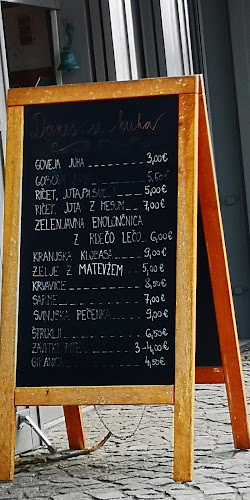 Danes se kuha
GOVEJA JUHA 3,00€
GOBOVA 5,50€
RIČET, JOTA, PASULJ 5,00€
RIČET, JOTA Z MESOM 7,00€
ZELENJAVNA ENOLONČNICA
Z RDEČO LEČO 6,00€
KRANJSKA KLOBASA 9,00€
ZELJE Z MATEVŽEM 5,00€
KRVAVICE 8,50€
SARME 7,00€
SVINJSKA PEČENKA 9,00€
ŠTRUKLJI 6,50€
ZAVITKI, PITE 3-4,00€
GIBANICA 4,50€